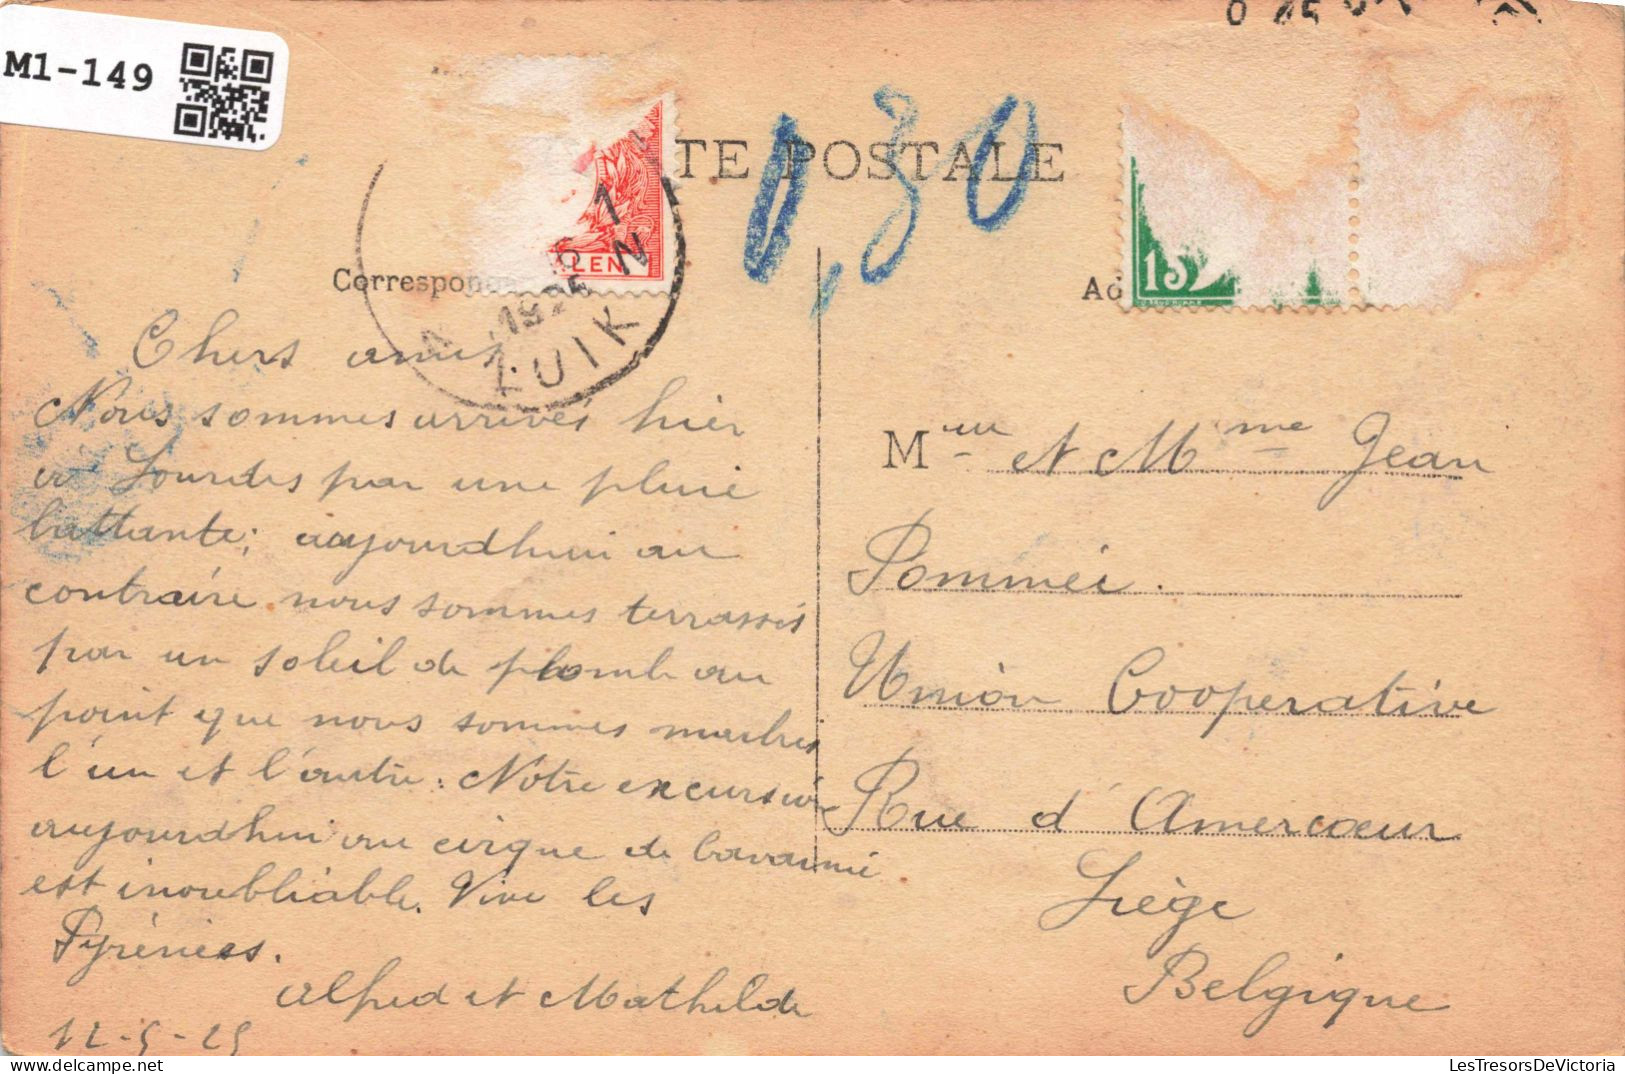 M1-149
TE POSTALE
0,30
Correspon
Ad
15
LEN
1925
LUIK
Chers amis.
Nous sommes arrivés hier
à Lourdes par une pluie
battante; aujourdhui au
contraire nous sommes terrassés
par un soleil de plomb au
point que nous sommes
l'un et l'autre. Notre excursion
aujourdhui au cirque de Gavarnie
est inoubliable. Vive les
Pyrénées.
Alfred et Mathilde
12-5-25
M et Mme Jean
Pommée.
Union Cooperative
Rue d'Amercœur
Liège
Belgique
LesTresorsDeVictoria